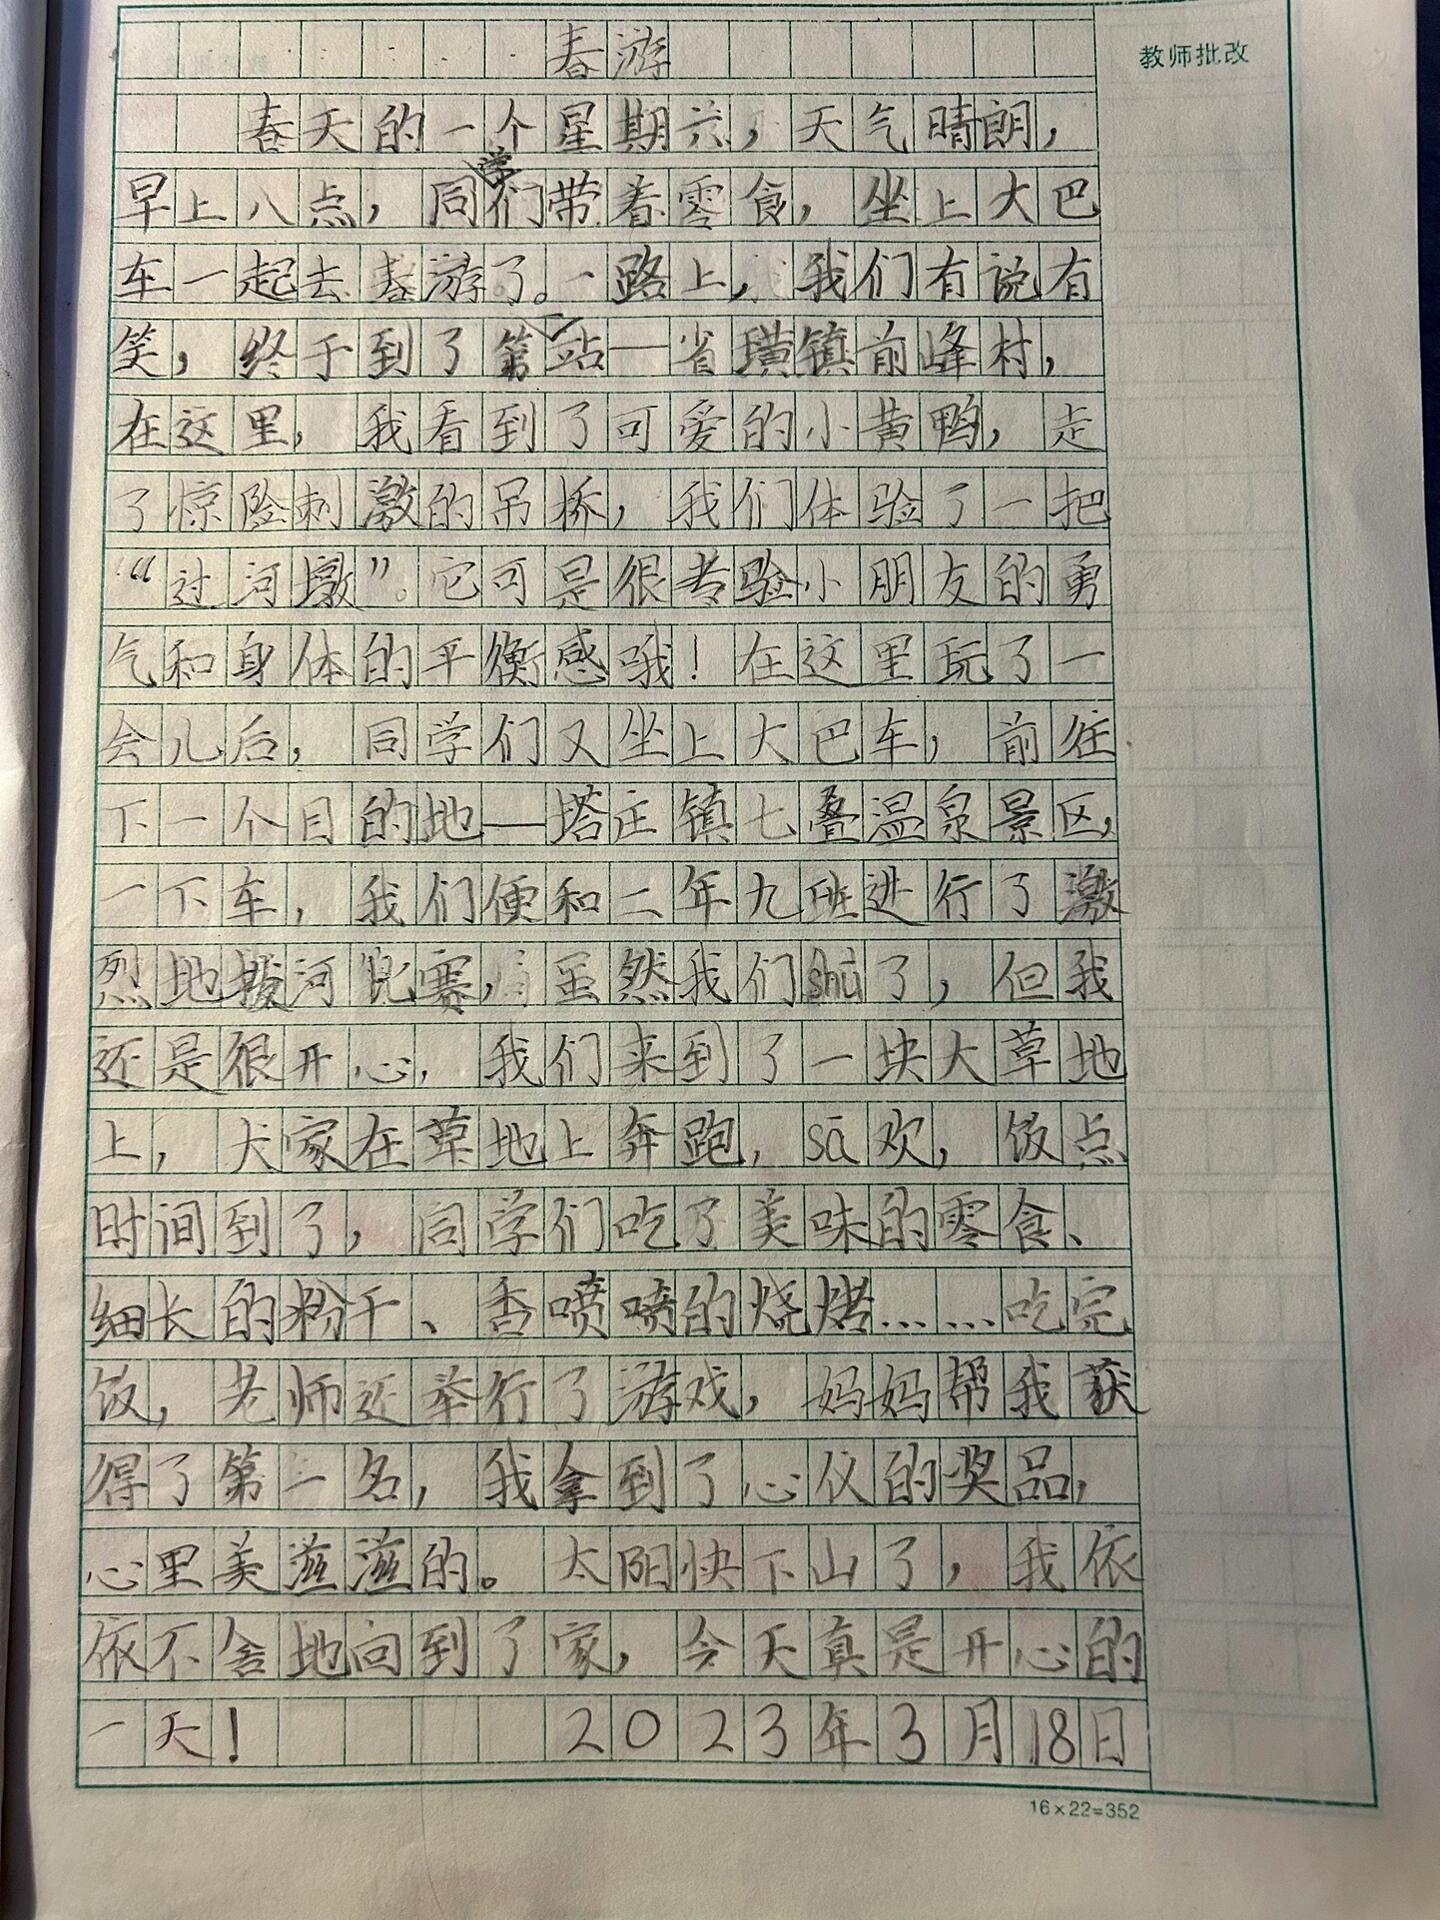 春游
教师批改
春天的一个星期六，天气晴朗，
早上八点，同学们带着零食，坐上大巴
车一起去春游了。一路上，我们有说有
笑，终于到了第一站—省璜镇前峰村，
在这里，我看到了可爱的小黄鸭，走
了惊险刺激的吊桥，我们体验了一把
“过河墩”。它可是很考验小朋友的勇
气和身体的平衡感哦！在这里玩了一
会儿后，同学们又坐上大巴车，前往
下一个目的地—塔庄镇七叠温泉景区，
一下车，我们便和二年九班进行了激
烈地拨河比赛，虽然我们shū了，但我
还是很开心，我们来到了一块大草地
上，大家在草地上奔跑，sā欢，饭点
时间到了，同学们吃了美味的零食、
细长的粉干、香喷喷的烧烤……吃完
饭，老师还举行了游戏，妈妈帮我获
得了第一名，我拿到了心仪的奖品，
心里美滋滋的。太阳快下山了，我依
依不舍地回到了家，今天真是开心的
一天！ 2023年3月18日
16×22=352